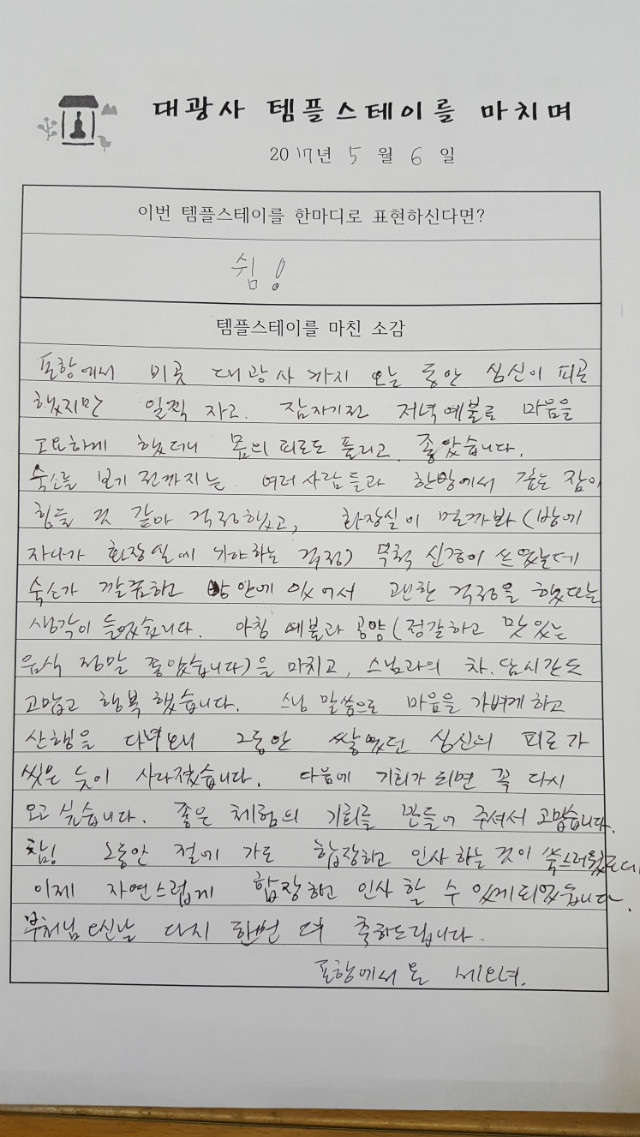 대광사 템플스테이를 마치며
2017년 5 월 6 일
이번 템플스테이를 한마디로 표현하신다면?
쉼!
템플스테이를 마친 소감
포항에서 이곳 대광사까지 오는 동안 심신이 피곤
했지만 일찍 자고. 잠자기전 저녁예불로 마음을
고요하게 했더니 몸의 피로도 풀리고 좋았습니다.
숙소를 보기 전까지는 여러사람들과 한방에서 같은 잠이
힘들 것 같아 걱정했고, 화장실이 멀까봐 (밤에
자다가 화장실에 가야하는 걱정) 무척 신경이 쓰였는데
숙소가 깔끔하고 방안에 있어서 괜한 걱정을 했다는
생각이 들었습니다. 아침 예불과 공양(정갈하고 맛있는
음식 정말 좋았습니다)을 마치고, 스님과의 차.담시간도
고맙고 행복했습니다. 스님 말씀으로 마음을 가볍게 하고
산행을 다녀오니 그동안 쌓였던 심신의 피로가
씻은 듯이 사라졌습니다. 다음에 기회가 되면 꼭 다시
오고 싶습니다. 좋은 체험의 기회를 만들어 주셔서 고맙습니다.
참! 그동안 절에 가도 합장하고 인사하는 것이 쑥스러웠는데
이제 자연스럽게 합장하고 인사 할 수 있게되었습니다.
부처님 오신날 다시 한번 더 축하드립니다.
포항에서 온 세모녀.